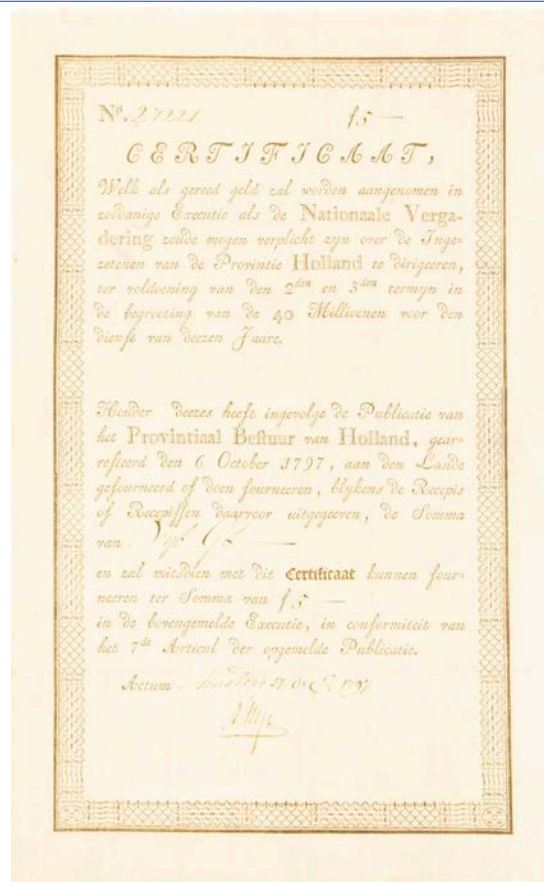 Nº. 27221 ƒ5 —
CERTIFICAAT,
Welk als gereed geld zal worden aangenomen in
zoodanige Executie als de Nationaale Verga-
dering zoude mogen verplicht zyn over de Inge-
zetenen van de Provintie Holland te dirigeeren,
ter voldoening van den 2den en 3den termyn in
de begrooting van de 40 Millioenen voor den
dienst van deezen Jaare.
Houder deezes heeft ingevolge de Publicatie van
het Provintiaal Bestuur van Holland, gear-
resteerd den 6 October 1797, aan den Lande
gefourneerd of doen fourneeren, blykens de Recepis
of Recepissen daarvoor uitgegeeven, de Somma
van Vyf
en zal mitsdien met dit Certificaat kunnen four-
neeren ter Somma van ƒ5 —
in de bovengemelde Executie, in conformiteit van
het 7de Articul der opgemelde Publicatie.
Actum 1797